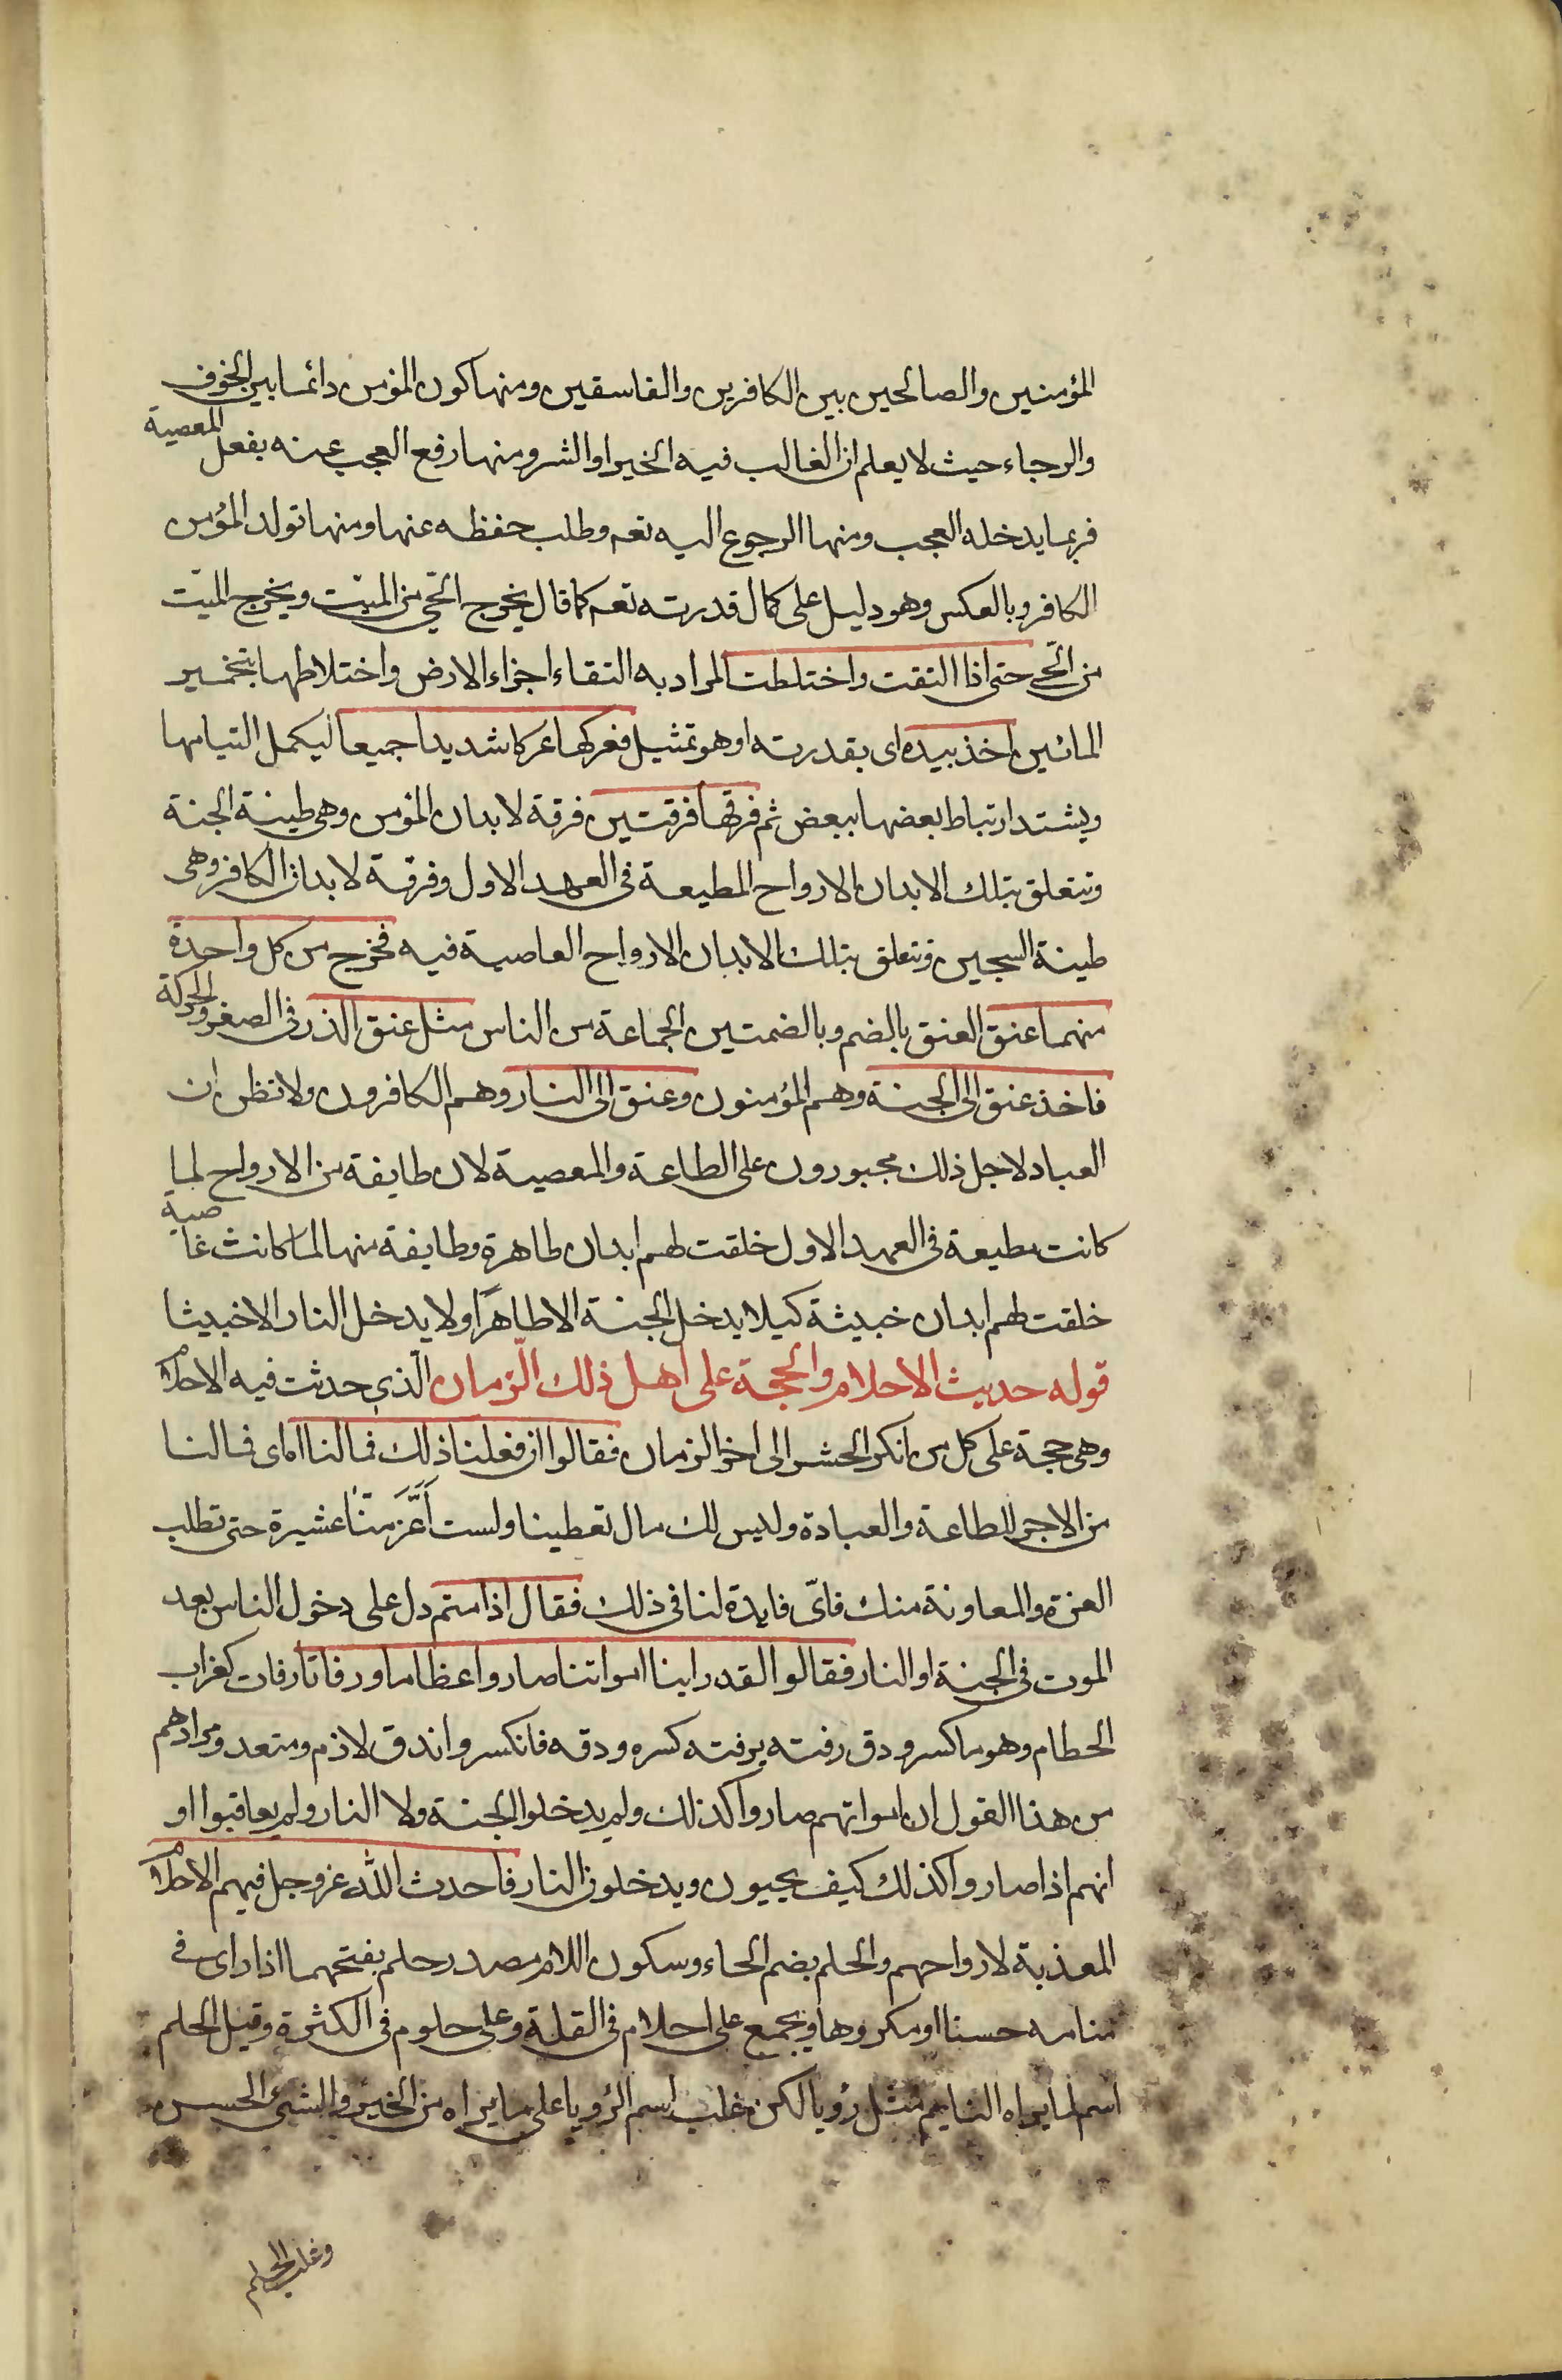 المؤمنين والصالحين بين الكافرين والفاسقين ومنها كون المؤمن دائما بين الخوف
والرجاء حيث لا يعلم ان الغالب فيه الخير او الشر ومنها رفع العجب عنه بفعل المعصية
فربما يدخله العجب ومنها الرجوع اليه تعه وطلب حفظه عنها ومنها تولد المؤمن
الكافر وبالعكس وهو دليل على كمال قدرته تعه كما قال يخرج الحّي من الميّت ويخرج الميّت
من الحّي حتى اذا التقت واختلطت المراد به التقاء اجزاء الارض واختلاطها بتخمير
المائين اخذ بيده اى بقدرته او هو تمثيل فعركها عركا شديدا جميعا ليكمل التيامها
ويشتد ارتباط بعضها ببعض ثم فرقها فرقتين فرقة لابدان المؤمن وهى طينة الجنة
وتتعلق بتلك الابدان الارواح المطيعة فى العهد الاول وفرقة لابدان الكافر وهى
طينة السجين وتتعلق بتلك الابدان الارواح العاصية فيه فخرج من كل واحدة
منهما عنق العنق بالضم وبالضمتين الجماعة من الناس مثل عنق الذر فى الصغر والحركة
فاخذ عنق الى الجنة وهم المؤمنون وعنق الى النار وهم الكافرون ولا تظن ان
العباد لاجل ذلك مجبورون على الطاعة والمعصية لان طايفة من الارواح لما
كانت مطيعة فى العهد الاول خلقت لهم ابدان طاهرة وطايفة منها لما كانت عاصية
خلقت لهم ابدان خبيثة كيلا يدخل الجنة الا طاهرًا ولا يدخل النار الا خبيثا
قوله حديث الاحلام والحجة على اهل ذلك الزمان الّذى حدثت فيه الاحلام
وهى حجة على كل من انكر الحشر الى اخر الزمان فقالوا ان فعلنا ذلك فمالنا اى فما لنا
من الاجر للطاعة والعبادة وليس لك مال تعطينا ولست اَعَزَّ منّا عشيرة حتى تطلب
العزة والمعاونة منك فاىّ فايدة لنا فى ذلك فقال اذا متم دل على دخول الناس بعد
الموت فى الجنة او النار فقالوا لقد راينا امواتنا صاروا عظاما ورفاتا رفات كغراب
الحطام وهو ما كسر ودق رفته يرفته كسره ودقه فانكسر واندق لازم ومتعد ومرادهم
من هذا القول ان امواتهم صاروا كذلك ولم يدخلوا الجنة ولا النار ولم يعاقبوا او
انهم اذا صاروا كذلك كيف يحيون ويدخلون النار فاحدث اللّٰه عز وجل فيهم الاحلام
المعذبة لارواحهم والحلم بضم الحاء وسكون اللام مصدر حلم بفتحهما اذا راى فى
منامه حسنا او مكروها ويجمع على احلام فى القلة وعلى حلوم فى الكثرة وقيل الحلم
اسم لما يراه النايم مثل رؤيا لكن غلب اسم الرؤيا على ما يراه من الخير والشئ الحسن
وغلب الحلم